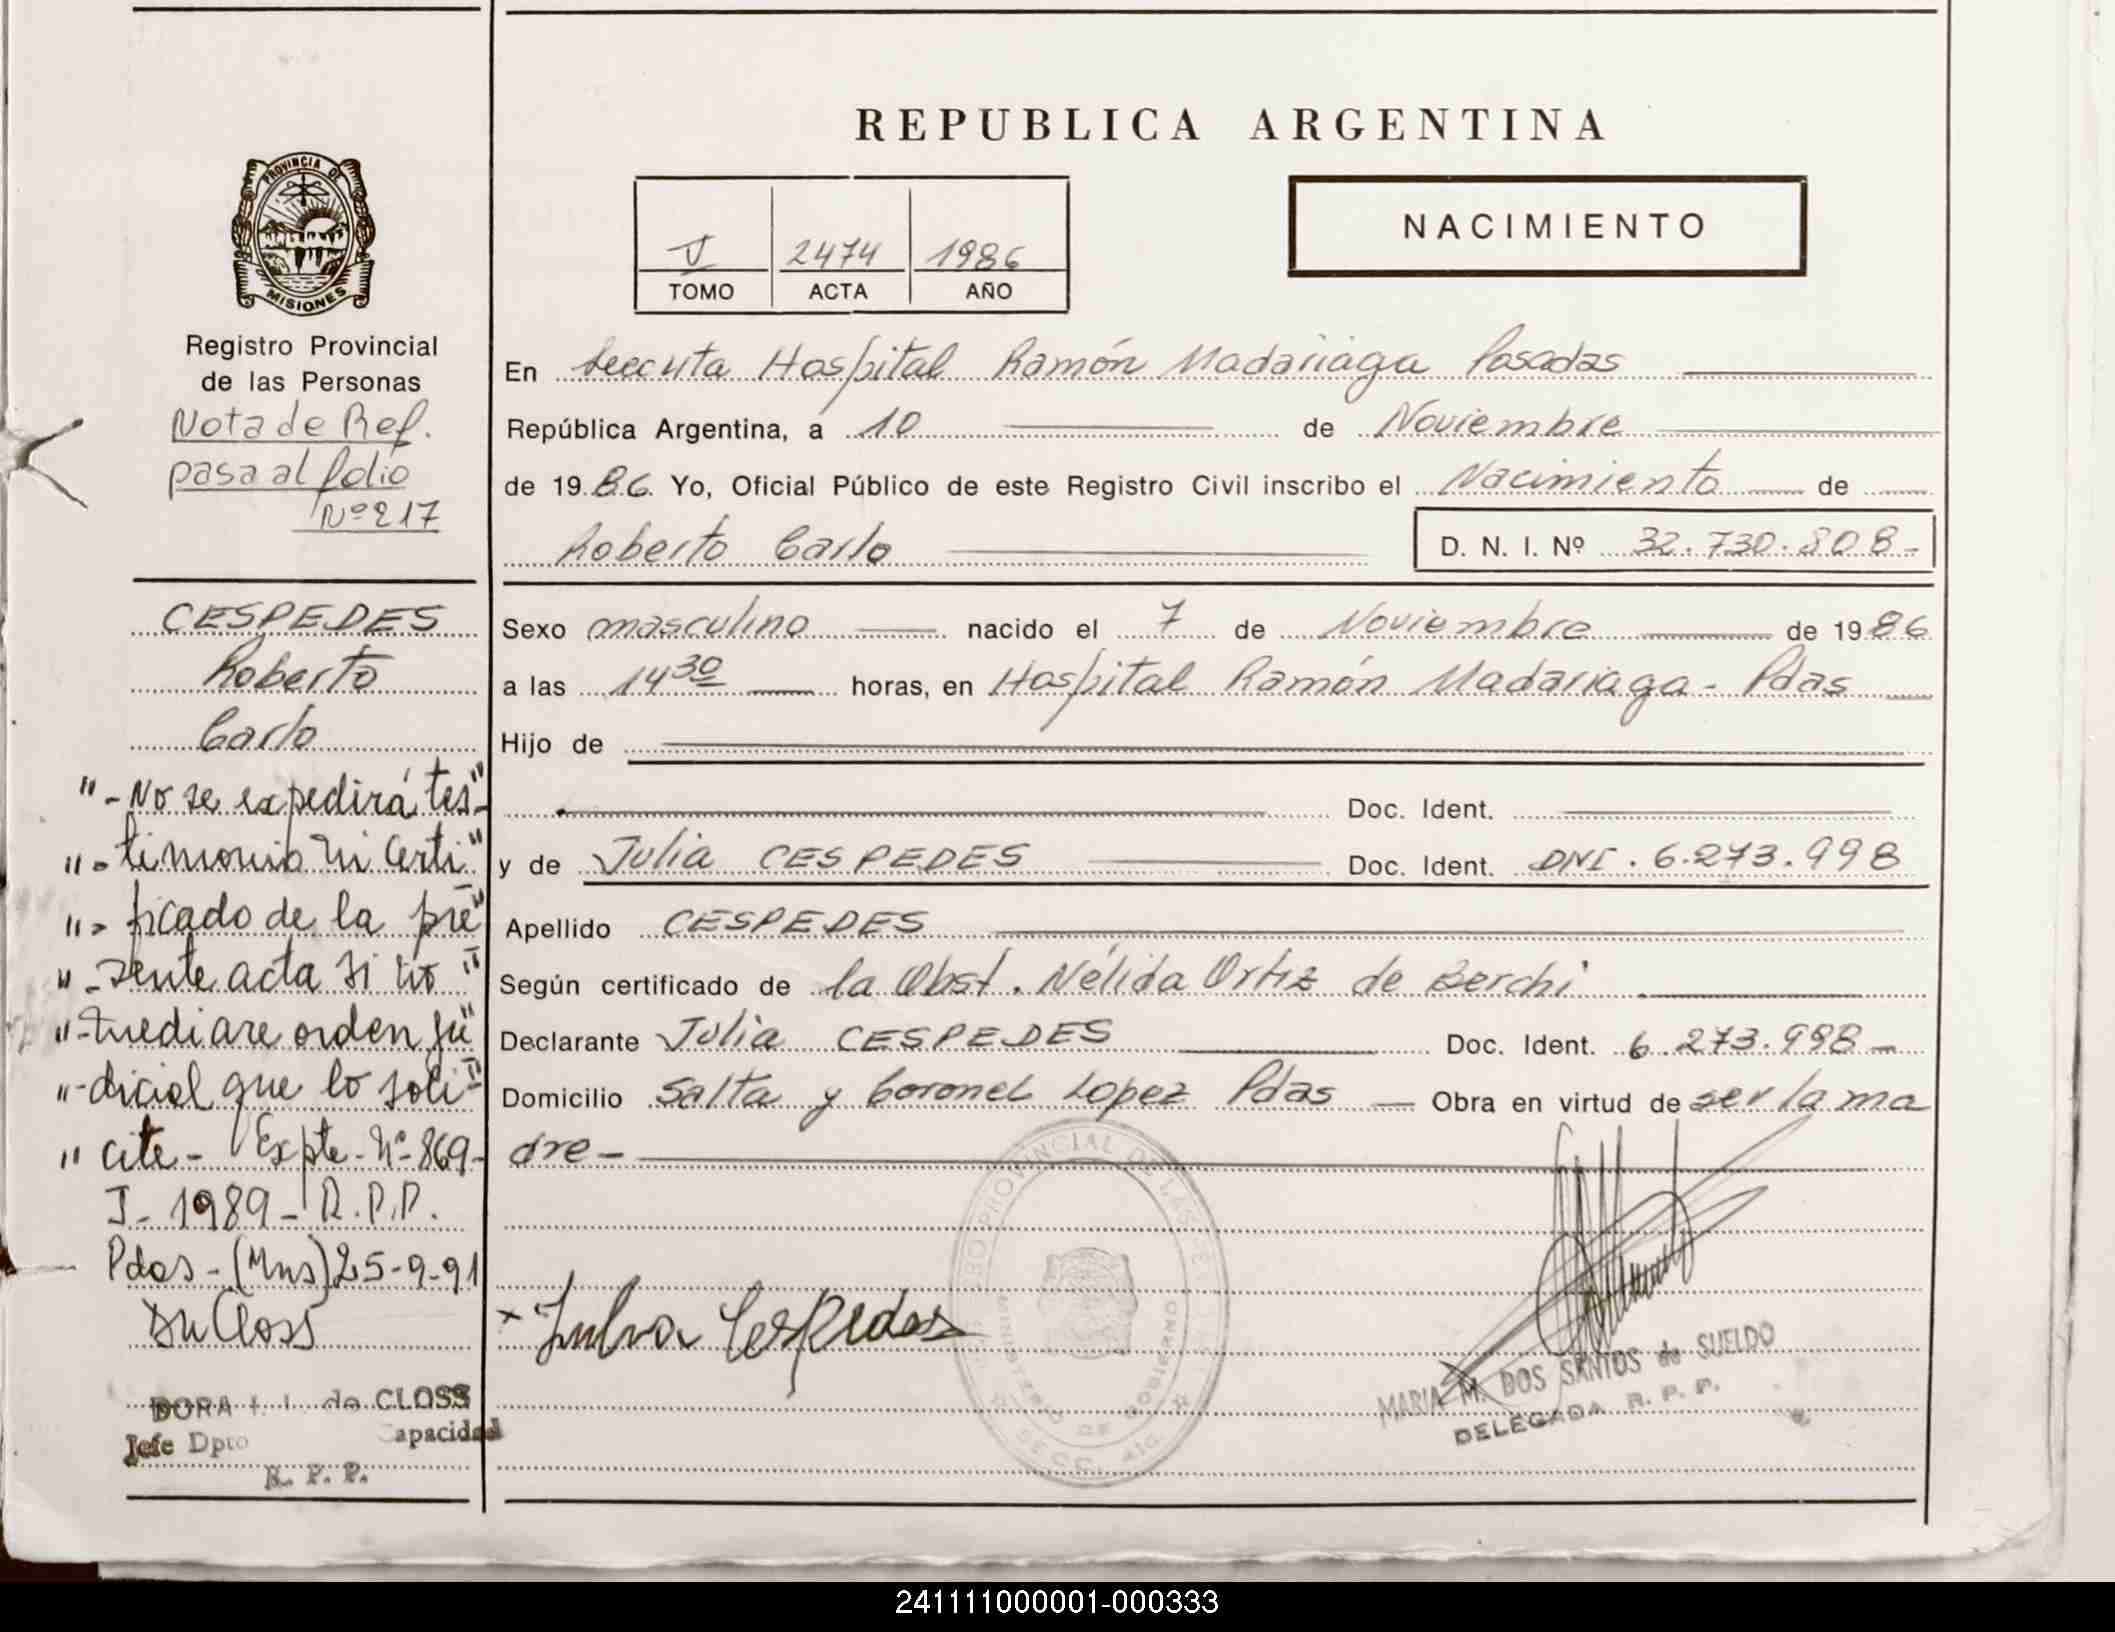 REPUBLICA ARGENTINA
NACIMIENTO
2474 1986
TOMO ACTA AÑO
PROVINCIA DE
MISIONES
Registro Provincial
de las Personas
Nota de Ref.
pasa al folio
Nº 217
CESPEDES
Roberto
Carlo
"- No se expedirá tes-"
"- timonio ni Certi"
"- ficado de la pre"
"- sente acta si no "
"- mediare orden ju"
"- dicial que lo soli-"
" cite - Expte - Nº 869-
J - 1989 - R.P.P.
Pdas - (Mns) 25-9-91
DORA de CLOSS
Jefe Dpto Capacidad
R. P. P.
En Hospital Ramón Madariaga Posadas
República Argentina, a 10 de Noviembre
de 1986 Yo, Oficial Público de este Registro Civil inscribo el Nacimiento de
Roberto Carlo D. N. I. Nº 32.730.808-
Sexo masculino nacido el 7 de Noviembre de 1986
a las 14 30 horas, en Hospital Ramón Madariaga - Pdas
Hijo de
Doc. Ident.
y de Julia CESPEDES Doc. Ident. DNI. 6.273.998
Apellido CESPEDES
Según certificado de la Obst. Nélida Ortiz de Berchi
Declarante Julia CESPEDES Doc. Ident. 6.273.998-
Domicilio Salta y Coronel Lopez Pdas - Obra en virtud de ser la ma
dre -
MARIA M. DOS SANTOS de SUELDO
DELEGADA R. P. P.
241111000001-000333